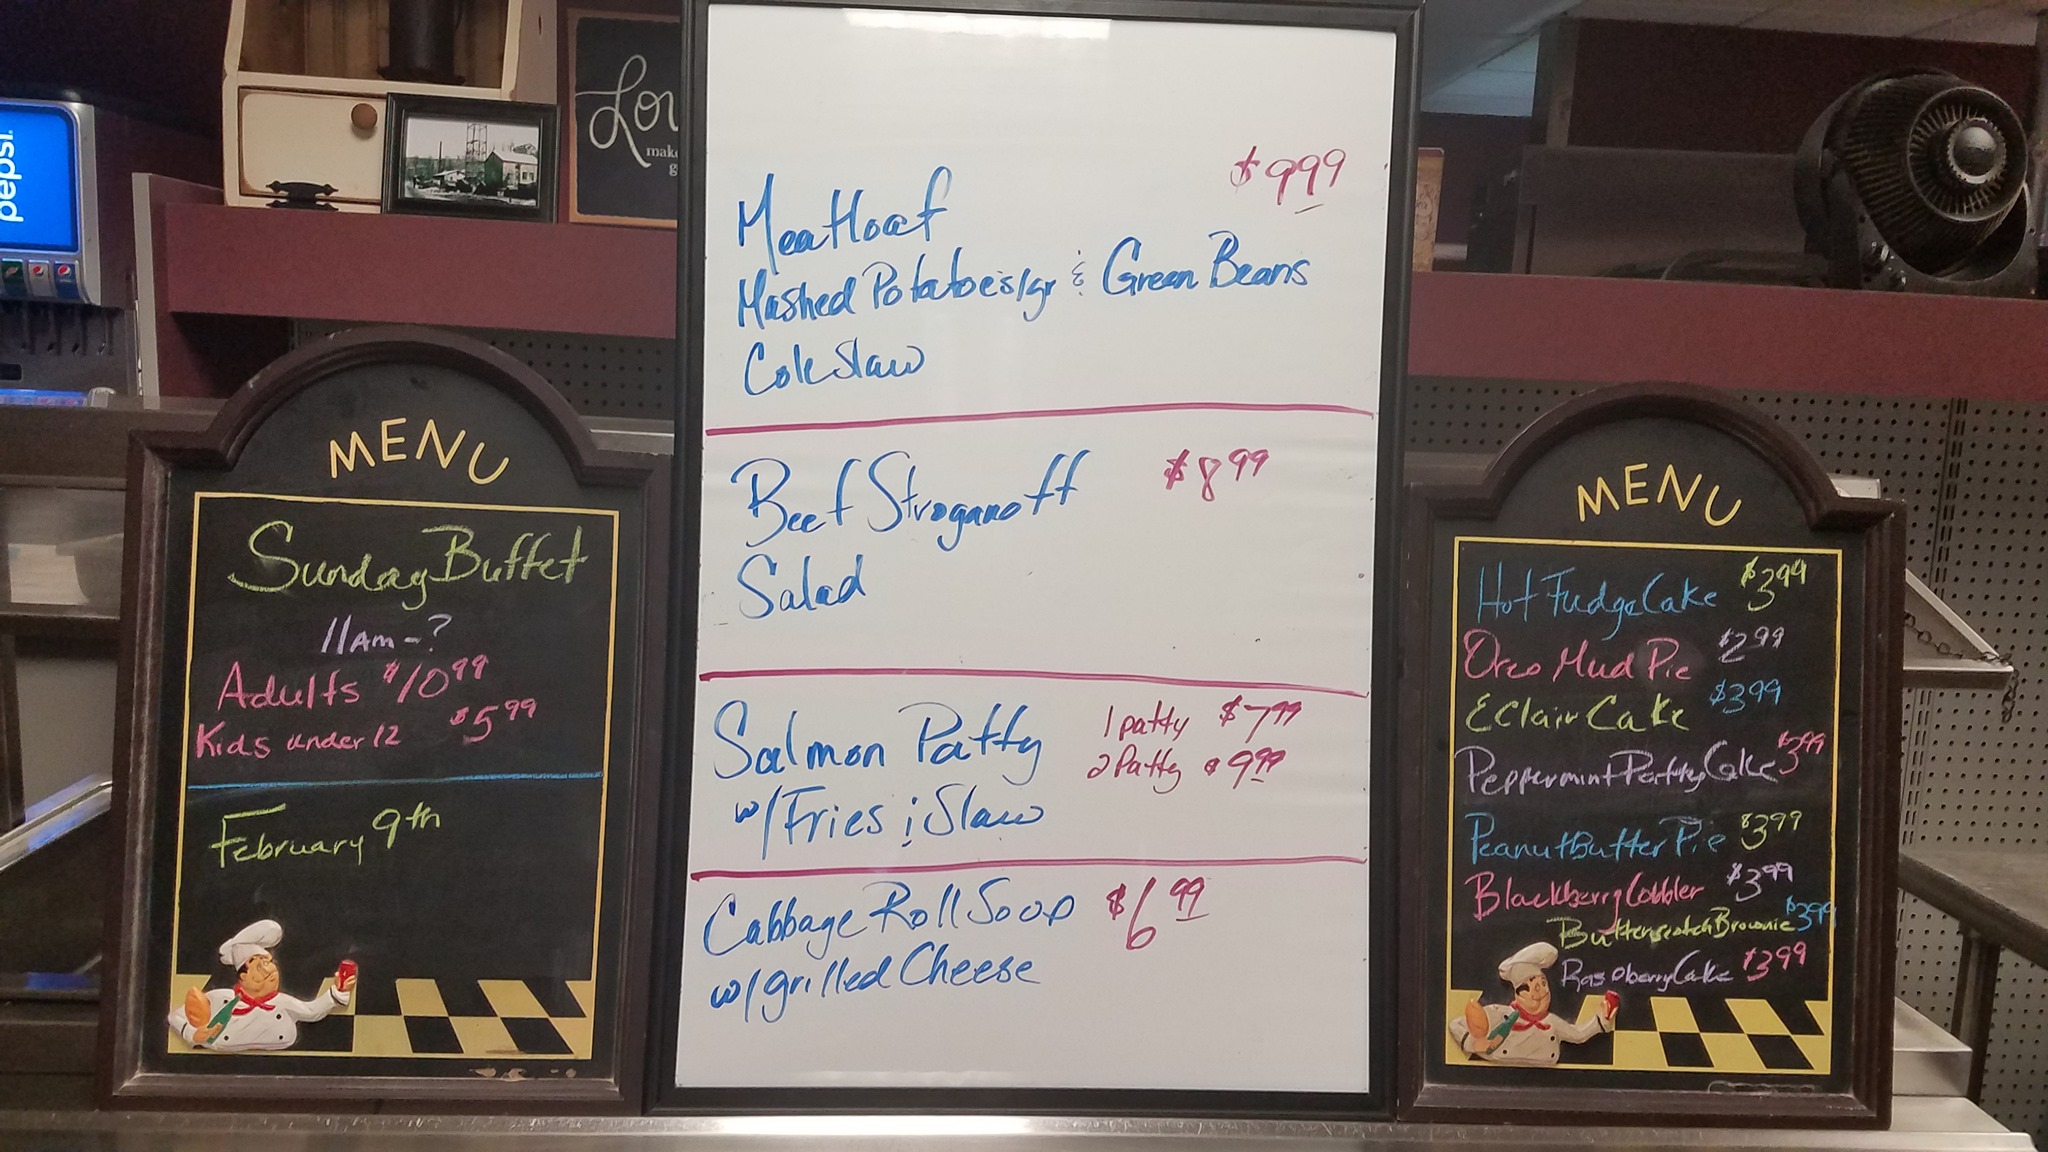 pepsi.
Lov
make
g
MENU
Sunday Buffet
11AM - ?
Adults $10.99
Kids under 12 $5.99
February 9th
$9.99
Meatloaf
Mashed Potatoes/gr & Green Beans
Coleslaw
Beef Stroganoff $8.99
Salad
Salmon Patty 1 patty $7.99
2 Patty $9.99
w/ Fries & Slaw
Cabbage Roll Soup $6.99
w/ grilled Cheese
MENU
Hot Fudge Cake $3.99
Oreo Mud Pie $2.99
Eclair Cake $3.99
Peppermint Patty Cake $3.99
Peanut butter Pie $3.99
Blackberry Cobbler $3.99
Butterscotch Brownie $3.99
Raspberry Cake $3.99